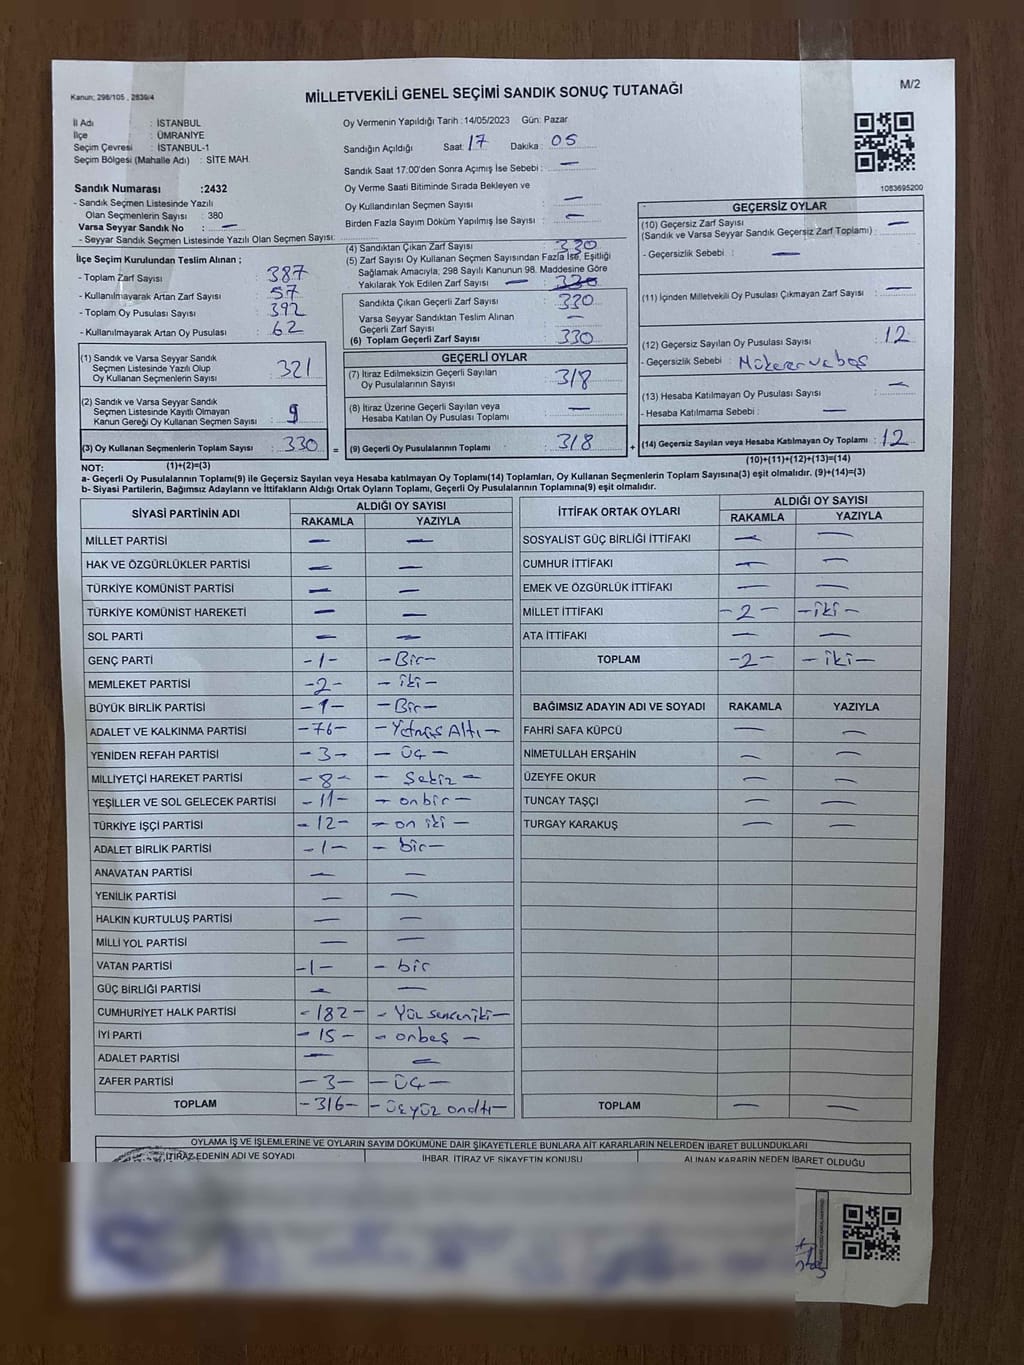 Kanun; 298/105 , 2839/4
MİLLETVEKİLİ GENEL SEÇİMİ SANDIK SONUÇ TUTANAĞI
M/2
İl Adı : İSTANBUL
İlçe : ÜMRANİYE
Seçim Çevresi : İSTANBUL-1
Seçim Bölgesi (Mahalle Adı) : SİTE MAH.
Oy Vermenin Yapıldığı Tarih :14/05/2023 Gün: Pazar
Sandığın Açıldığı Saat: 17 Dakika : 05
Sandık Saat 17:00'den Sonra Açımış İse Sebebi : —
Oy Verme Saati Bitiminde Sırada Bekleyen ve
Oy Kullandırılan Seçmen Sayısı : —
Birden Fazla Sayım Döküm Yapılmış İse Sayısı : —
1083695200
Sandık Numarası :2432
- Sandık Seçmen Listesinde Yazılı
Olan Seçmenlerin Sayısı : 380
Varsa Seyyar Sandık No : —
- Seyyar Sandık Seçmen Listesinde Yazılı Olan Seçmen Sayısı:
İlçe Seçim Kurulundan Teslim Alınan ;
- Toplam Zarf Sayısı : 387
- Kullanılmayarak Artan Zarf Sayısı : 57
- Toplam Oy Pusulası Sayısı : 392
- Kullanılmayarak Artan Oy Pusulası : 62
(1) Sandık ve Varsa Seyyar Sandık
Seçmen Listesinde Yazılı Olup
Oy Kullanan Seçmenlerin Sayısı : 321
(2) Sandık ve Varsa Seyyar Sandık
Seçmen Listesinde Kayıtlı Olmayan
Kanun Gereği Oy Kullanan Seçmen Sayısı : 9
(3) Oy Kullanan Seçmenlerin Toplam Sayısı : 330 =
(4) Sandıktan Çıkan Zarf Sayısı : 330
(5) Zarf Sayısı Oy Kullanan Seçmen Sayısından Fazla İse, Eşitliği
Sağlamak Amacıyla, 298 Sayılı Kanunun 98. Maddesine Göre
Yakılarak Yok Edilen Zarf Sayısı : — 330
Sandıkta Çıkan Geçerli Zarf Sayısı : 330
Varsa Seyyar Sandıktan Teslim Alınan
Geçerli Zarf Sayısı : —
(6) Toplam Geçerli Zarf Sayısı : 330
GEÇERLİ OYLAR
(7) İtiraz Edilmeksizin Geçerli Sayılan
Oy Pusulalarının Sayısı : 318
(8) İtiraz Üzerine Geçerli Sayılan veya
Hesaba Katılan Oy Pusulası Toplamı : —
(9) Geçerli Oy Pusulalarının Toplamı : 318 +
GEÇERSİZ OYLAR
(10) Geçersiz Zarf Sayısı
(Sandık ve Varsa Seyyar Sandık Geçersiz Zarf Toplamı) : —
- Geçersizlik Sebebi : —
(11) İçinden Milletvekili Oy Pusulası Çıkmayan Zarf Sayısı : —
(12) Geçersiz Sayılan Oy Pusulası Sayısı : 12
- Geçersizlik Sebebi : Mükerer ve boş
(13) Hesaba Katılmayan Oy Pusulası Sayısı : —
- Hesaba Katılmama Sebebi : —
(14) Geçersiz Sayılan veya Hesaba Katılmayan Oy Toplamı : 12
NOT: (1)+(2)=(3)
(10)+(11)+(12)+(13)=(14)
a- Geçerli Oy Pusulalarının Toplamı(9) ile Geçersiz Sayılan veya Hesaba katılmayan Oy Toplamı(14) Toplamları, Oy Kullanan Seçmenlerin Toplam Sayısına(3) eşit olmalıdır. (9)+(14)=(3)
b- Siyasi Partilerin, Bağımsız Adayların ve İttifakların Aldığı Ortak Oyların Toplamı, Geçerli Oy Pusulalarının Toplamına(9) eşit olmalıdır.
SİYASİ PARTİNİN ADI ALDIĞI OY SAYISI
RAKAMLA YAZIYLA
MİLLET PARTİSİ — —
HAK VE ÖZGÜRLÜKLER PARTİSİ — —
TÜRKİYE KOMÜNİST PARTİSİ — —
TÜRKİYE KOMÜNİST HAREKETİ — —
SOL PARTİ — —
GENÇ PARTİ -1- -Bir-
MEMLEKET PARTİSİ -2- -iki-
BÜYÜK BİRLİK PARTİSİ -1- -Bir-
ADALET VE KALKINMA PARTİSİ -76- -Yetmiş Altı-
YENİDEN REFAH PARTİSİ -3- -Üç-
MİLLİYETÇİ HAREKET PARTİSİ -8- -Sekiz-
YEŞİLLER VE SOL GELECEK PARTİSİ -11- -onbir-
TÜRKİYE İŞÇİ PARTİSİ -12- -on iki-
ADALET BİRLİK PARTİSİ -1- -bir-
ANAVATAN PARTİSİ — —
YENİLİK PARTİSİ — —
HALKIN KURTULUŞ PARTİSİ — —
MİLLİ YOL PARTİSİ — —
VATAN PARTİSİ -1- -bir
GÜÇ BİRLİĞİ PARTİSİ — —
CUMHURİYET HALK PARTİSİ -182- -Yüz senceniki-
İYİ PARTİ -15- -onbeş-
ADALET PARTİSİ — —
ZAFER PARTİSİ -3- -Üç-
TOPLAM -316- -üçyüz onaltı-
İTTİFAK ORTAK OYLARI ALDIĞI OY SAYISI
RAKAMLA YAZIYLA
SOSYALİST GÜÇ BİRLİĞİ İTTİFAKI — —
CUMHUR İTTİFAKI — —
EMEK VE ÖZGÜRLÜK İTTİFAKI — —
MİLLET İTTİFAKI -2- -iki-
ATA İTTİFAKI — —
TOPLAM -2- -iki-
BAĞIMSIZ ADAYIN ADI VE SOYADI RAKAMLA YAZIYLA
FAHRİ SAFA KÜPCÜ — —
NİMETULLAH ERŞAHİN — —
ÜZEYFE OKUR — —
TUNCAY TAŞÇI — —
TURGAY KARAKUŞ — —
TOPLAM — —
OYLAMA İŞ VE İŞLEMLERİNE VE OYLARIN SAYIM DÖKÜMÜNE DAİR ŞİKAYETLERLE BUNLARA AİT KARARLARIN NELERDEN İBARET BULUNDUKLARI
İTİRAZ EDENİN ADI VE SOYADI İHBAR, İTİRAZ VE ŞİKAYETİN KONUSU ALINAN KARARIN NEDEN İBARET OLDUĞU